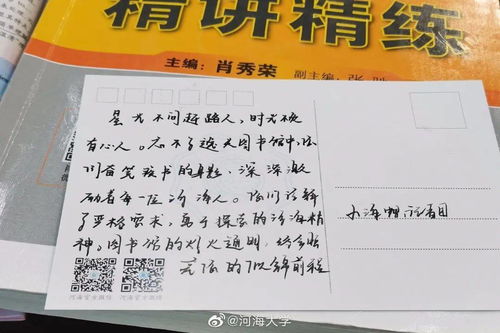 精讲精练
主编：肖秀荣
副主编：张
星光不问赶路人，时光不负
有心人。忘不了逸夫图书馆中，你
们奋笔疾书的身影，深深激
励着每一位河海人。你们诠释
了严格要求，勇于探索的河海精
神。图书馆的灯火通明，终会照
亮你的似锦前程
小海
河海官方微信
河海官方微博
@河海大学